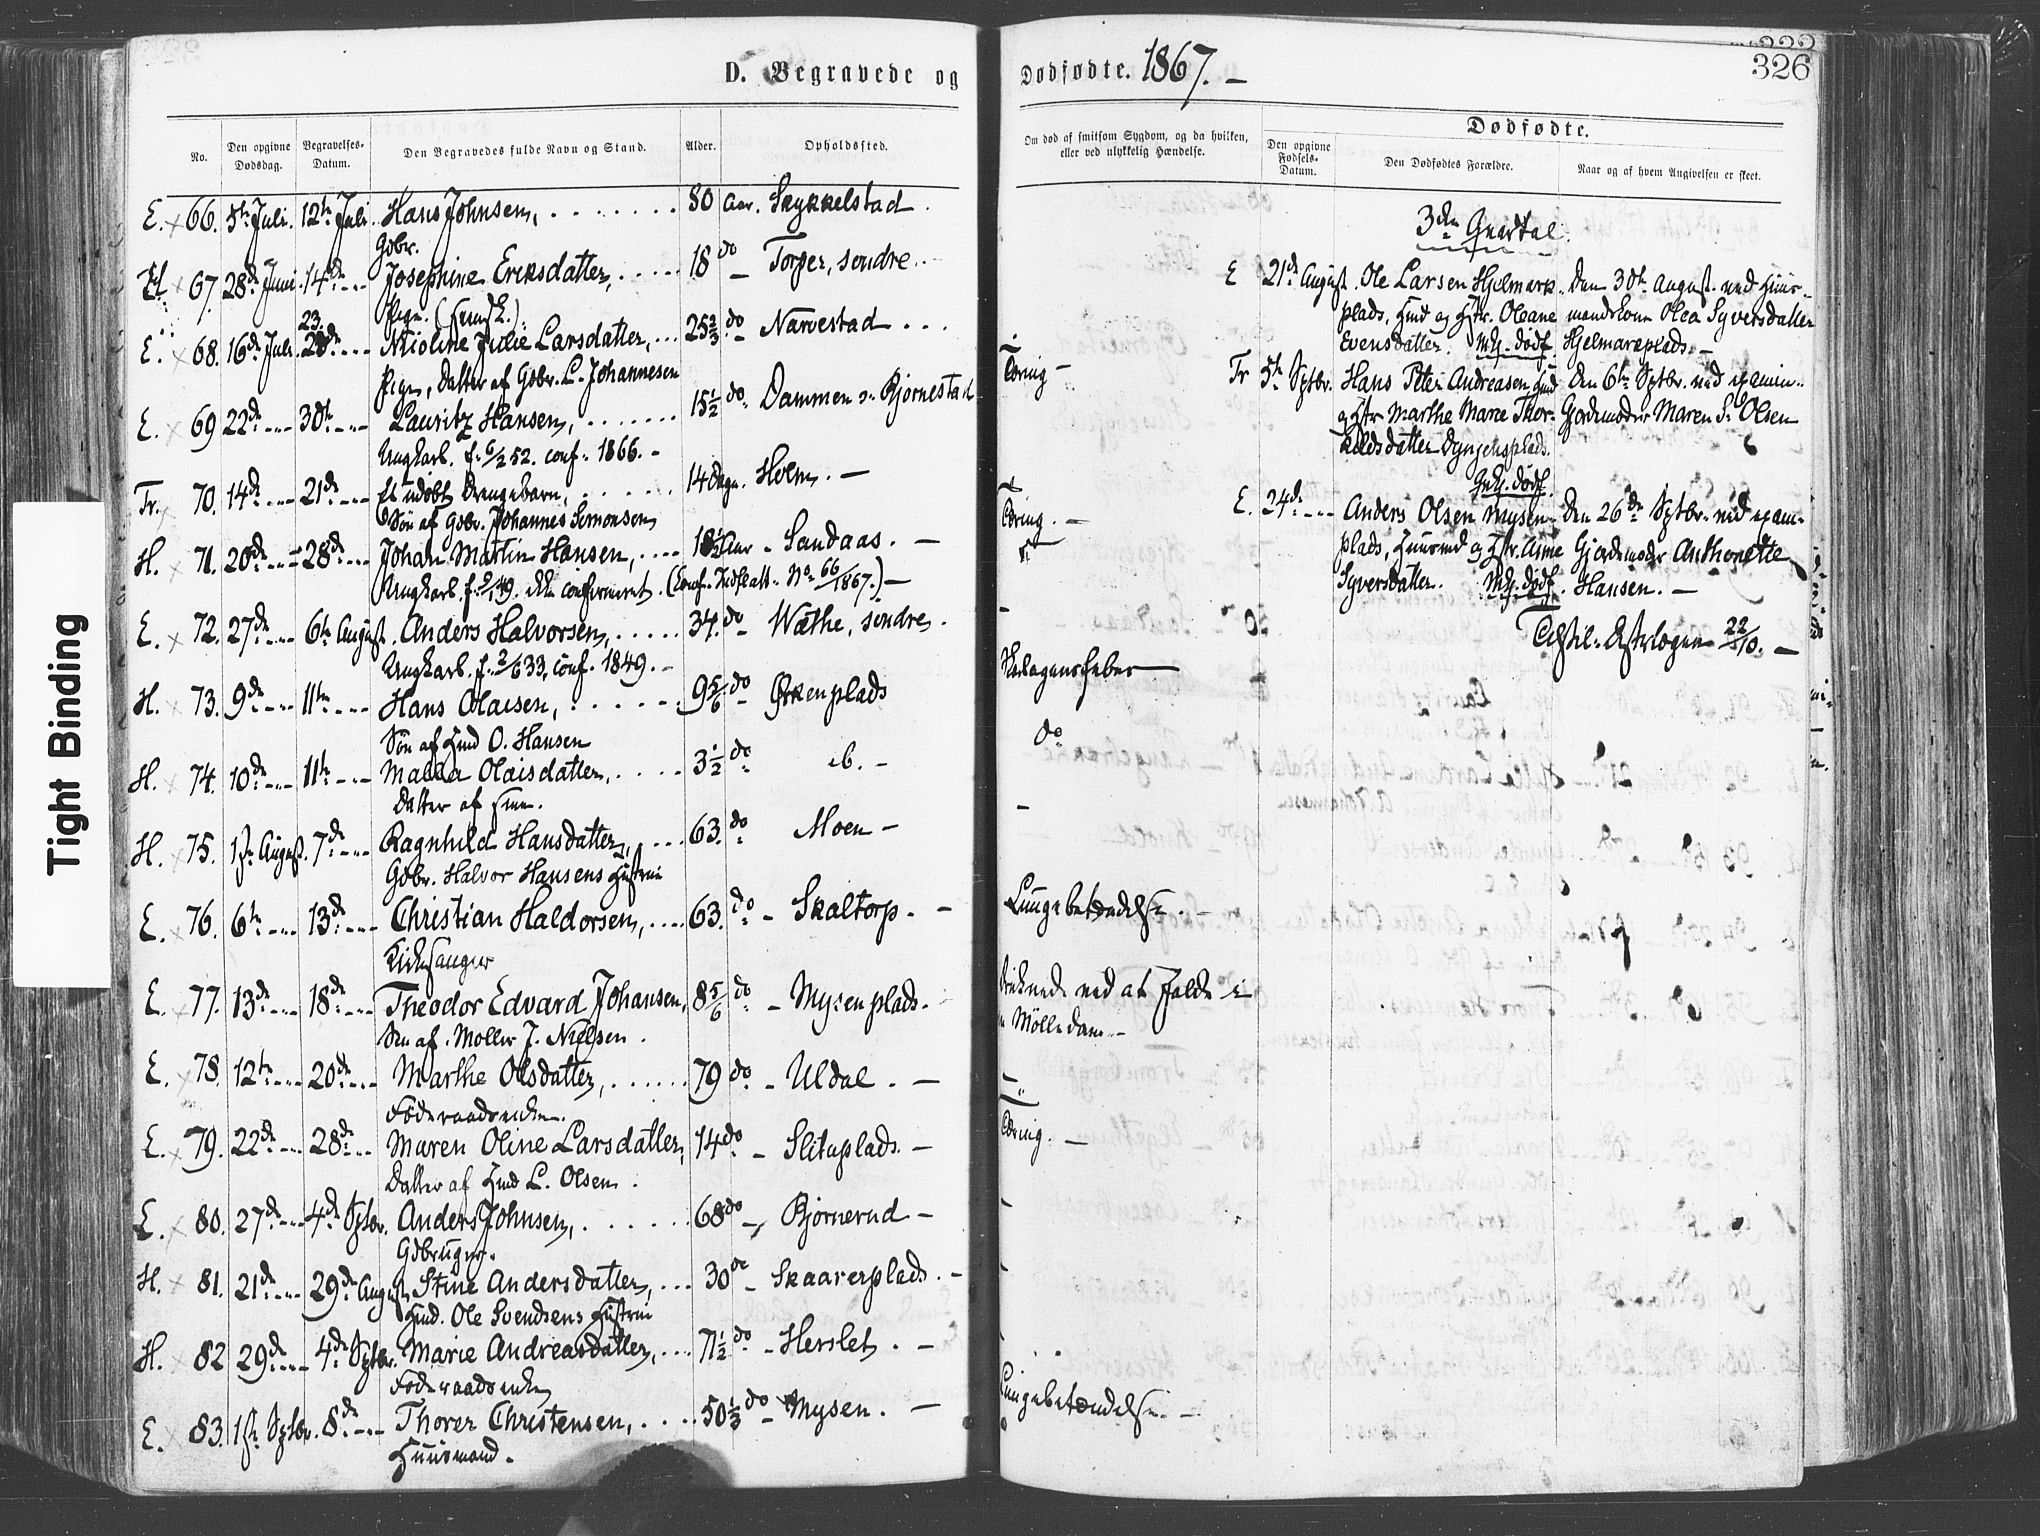 D. Begravede og
Dødfødte. 1867. –
326
Tight Binding
No.
Den opgivne Dødsdag.
Begravelses-Datum.
Den Begravedes fulde Navn og Stand.
Alder.
Opholdssted.
Om død af smitsom Sygdom, og da hvilken, eller ved ulykkelig Hændelse.
Dødfødte.
Den opgivne Fødsels-Datum.
Den Dødfødtes Forældre.
Naar og af hvem Angivelsen er skeet.
E. × 66. 5te Juli. 12te Juli. Hans Johnsen, 80 Aar. Skykkelstad.
Gdbr.
67. 28de Juni 14de Josephine Eriksdatter, 18 do Torper, søndre.
Pige.
23.
E. × 68. 16de Juli Nicoline Julie Larsdatter, 25 2/3 do Narvestad
Pige, Datter af Gdbr. L. Johannesen
E. × 69 22de 30te Lauritz Hansen, 15 1/2 do Dammen Bjørnestad Tæring –
Ungkarl. f. 6/2 52. conf. 1866. –
Fr. 70. 14de 21de Et udøbt Drengebarn, 14 Dage. Holm. –
Søn af Gdbr. Johannes Simonsen
H. 71. 20de 28de Johan Martin Hansen, 18 1/2 Aar Sandaas. – Tæring. –
Ungkarl, ikke confirmeret. (Conf. Indkalt. No. 66/1867.) –
E. × 72. 27de 6te August Anders Halvorsen, 34 do Wæthe, søndre.
Ungkarl. f. 2/6 33, conf. 1849. –
H. × 73. 9de 11te Hans Olaisen, 9 5/6 do Ørkenplads
Søn af Hmd O. Hansen
H. × 74. 10de 11te Olaisdatter, 3 1/2 do ib. – do
Datter af
H. × 75. 1ste August. 7de Ragnhild Hansdatter, 63. do Moen –
Gdbr. Halvor Hansens Hustru
E. × 76. 6te 13de Christian Haldorsen, 63. do Skaltorp. – Lungebetændelse. –
Kirkesanger
E. × 77. 13de 18de Theodor Edvard Johansen, 8 5/6 do Mysenplads. druknede ved at falde i
Søn af Møller J. Nielsen. Mølledam –
E. × 78. 12te 20de Marthe Olsdatter, 79 do Uldal. –
Føderaadsenke.
E. × 79. 22de 28de Maren Oline Larsdatter, 14 do Slituplads. – Tæring. –
Datter af Hmd L. Olsen.
E. × 80. 27de 4de Sptbr. Anders Johnsen, 68 do Bjørnerud –
Gdbruger.
H. × 81. 21de 29de August Stine Andersdatter, 30 do Skaarerplads. –
Hmd. Ole Svendsens Hustru
H. × 82 29de 4de Sptbr. Marie Andreasdatter, 71 1/2 do Herslet. –
Føderaadsenke
E. × 83. 1ste Sptbr. 8de Thorer Christensen, 50 1/3 do Mysen. – Lungebetændelse. –
Huusmand.
3die Quartal.
E 21de August. Ole Larsen Hjelmark- Den 30te August ved Huus-
plads, Hmd og Hstr. Oleane mandskone Olea Syversdatter
Evensdatter. Hjelmarkplads. –
Fr 5te Sptbr. Hans Peter Andreasen Hmd Den 6te Sptbr. ved examin.
og Hstr Marthe Marie Thor- Gjordemoder Maren S. Olsen
kildsdatter
E. 24de Anders Olsen Mysen- Den 26de Sptbr. ved exam.
plads, Huusmd og Hstr. Anne Gjordemoder Anthonette
Syversdatter. Hansen. –
22/10. –